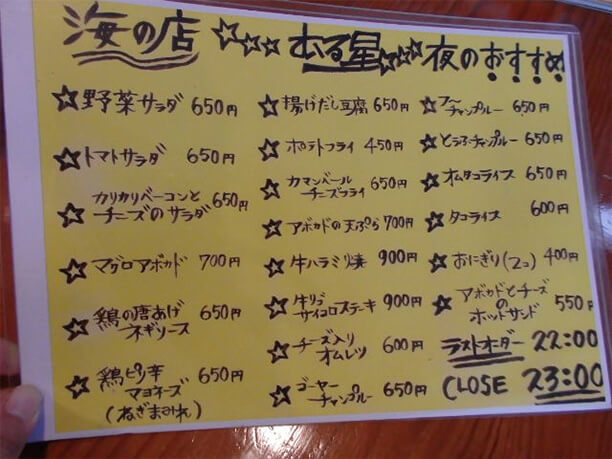 海の店 ☆☆☆ むる星 ☆☆☆ 夜のおすすめ!
☆野菜サラダ 650円
☆トマトサラダ 650円
☆カリカリベーコンと
チーズのサラダ 650円
☆マグロアボカド 700円
☆鶏の唐あげ
ネギソース 650円
☆鶏ピリ辛
マヨネーズ 650円
(ねぎまみれ)
☆揚げだし豆腐 650円
☆ポテトフライ 450円
☆カマンベール
チーズフライ 650円
☆アボカドの天ぷら 700円
☆牛ハラミ焼 900円
☆牛リブ
サイコロステーキ 900円
☆チーズ入り
オムレツ 600円
☆ゴーヤー
チャンプルー 650円
☆フー
チャンプルー 650円
☆とうふチャンプルー 650円
☆オムタコライス 650円
☆タコライス 600円
☆おにぎり(2コ) 400円
☆アボカドとチーズ
の
ホットサンド 550円
ラストオーダー 22:00
CLOSE 23:00